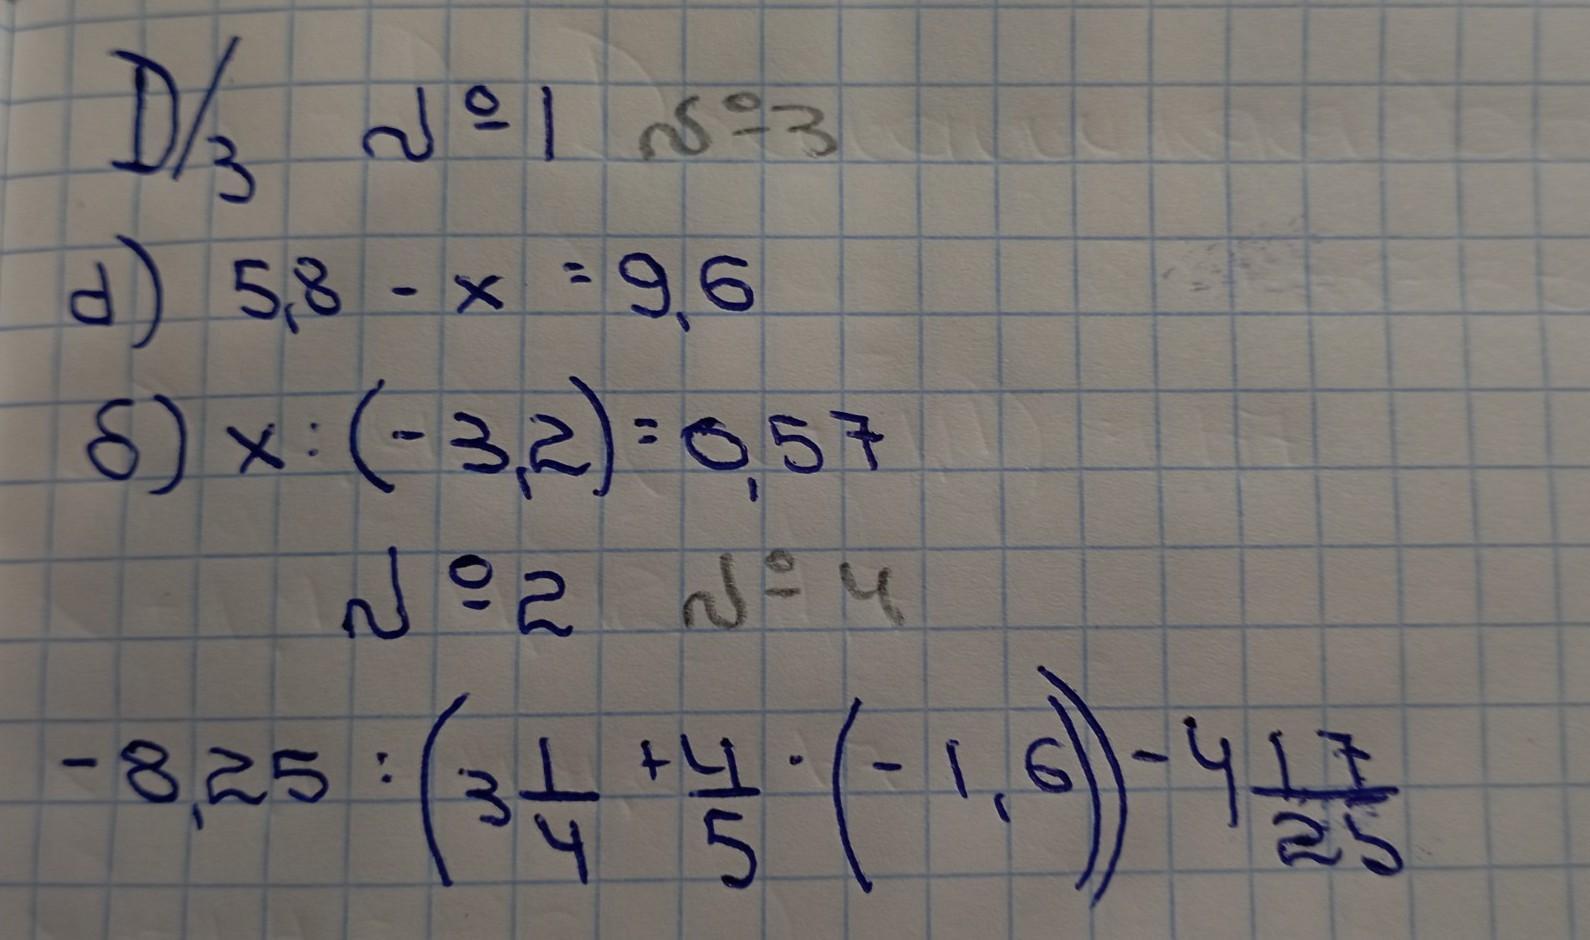 D/з №1 №3
а) 5,8 - x = 9,6
б) x : (-3,2) = 0,57
№2 №4
-8,25 : (3 1/4 + 4/5 · (-1,6)) - 4 17/25